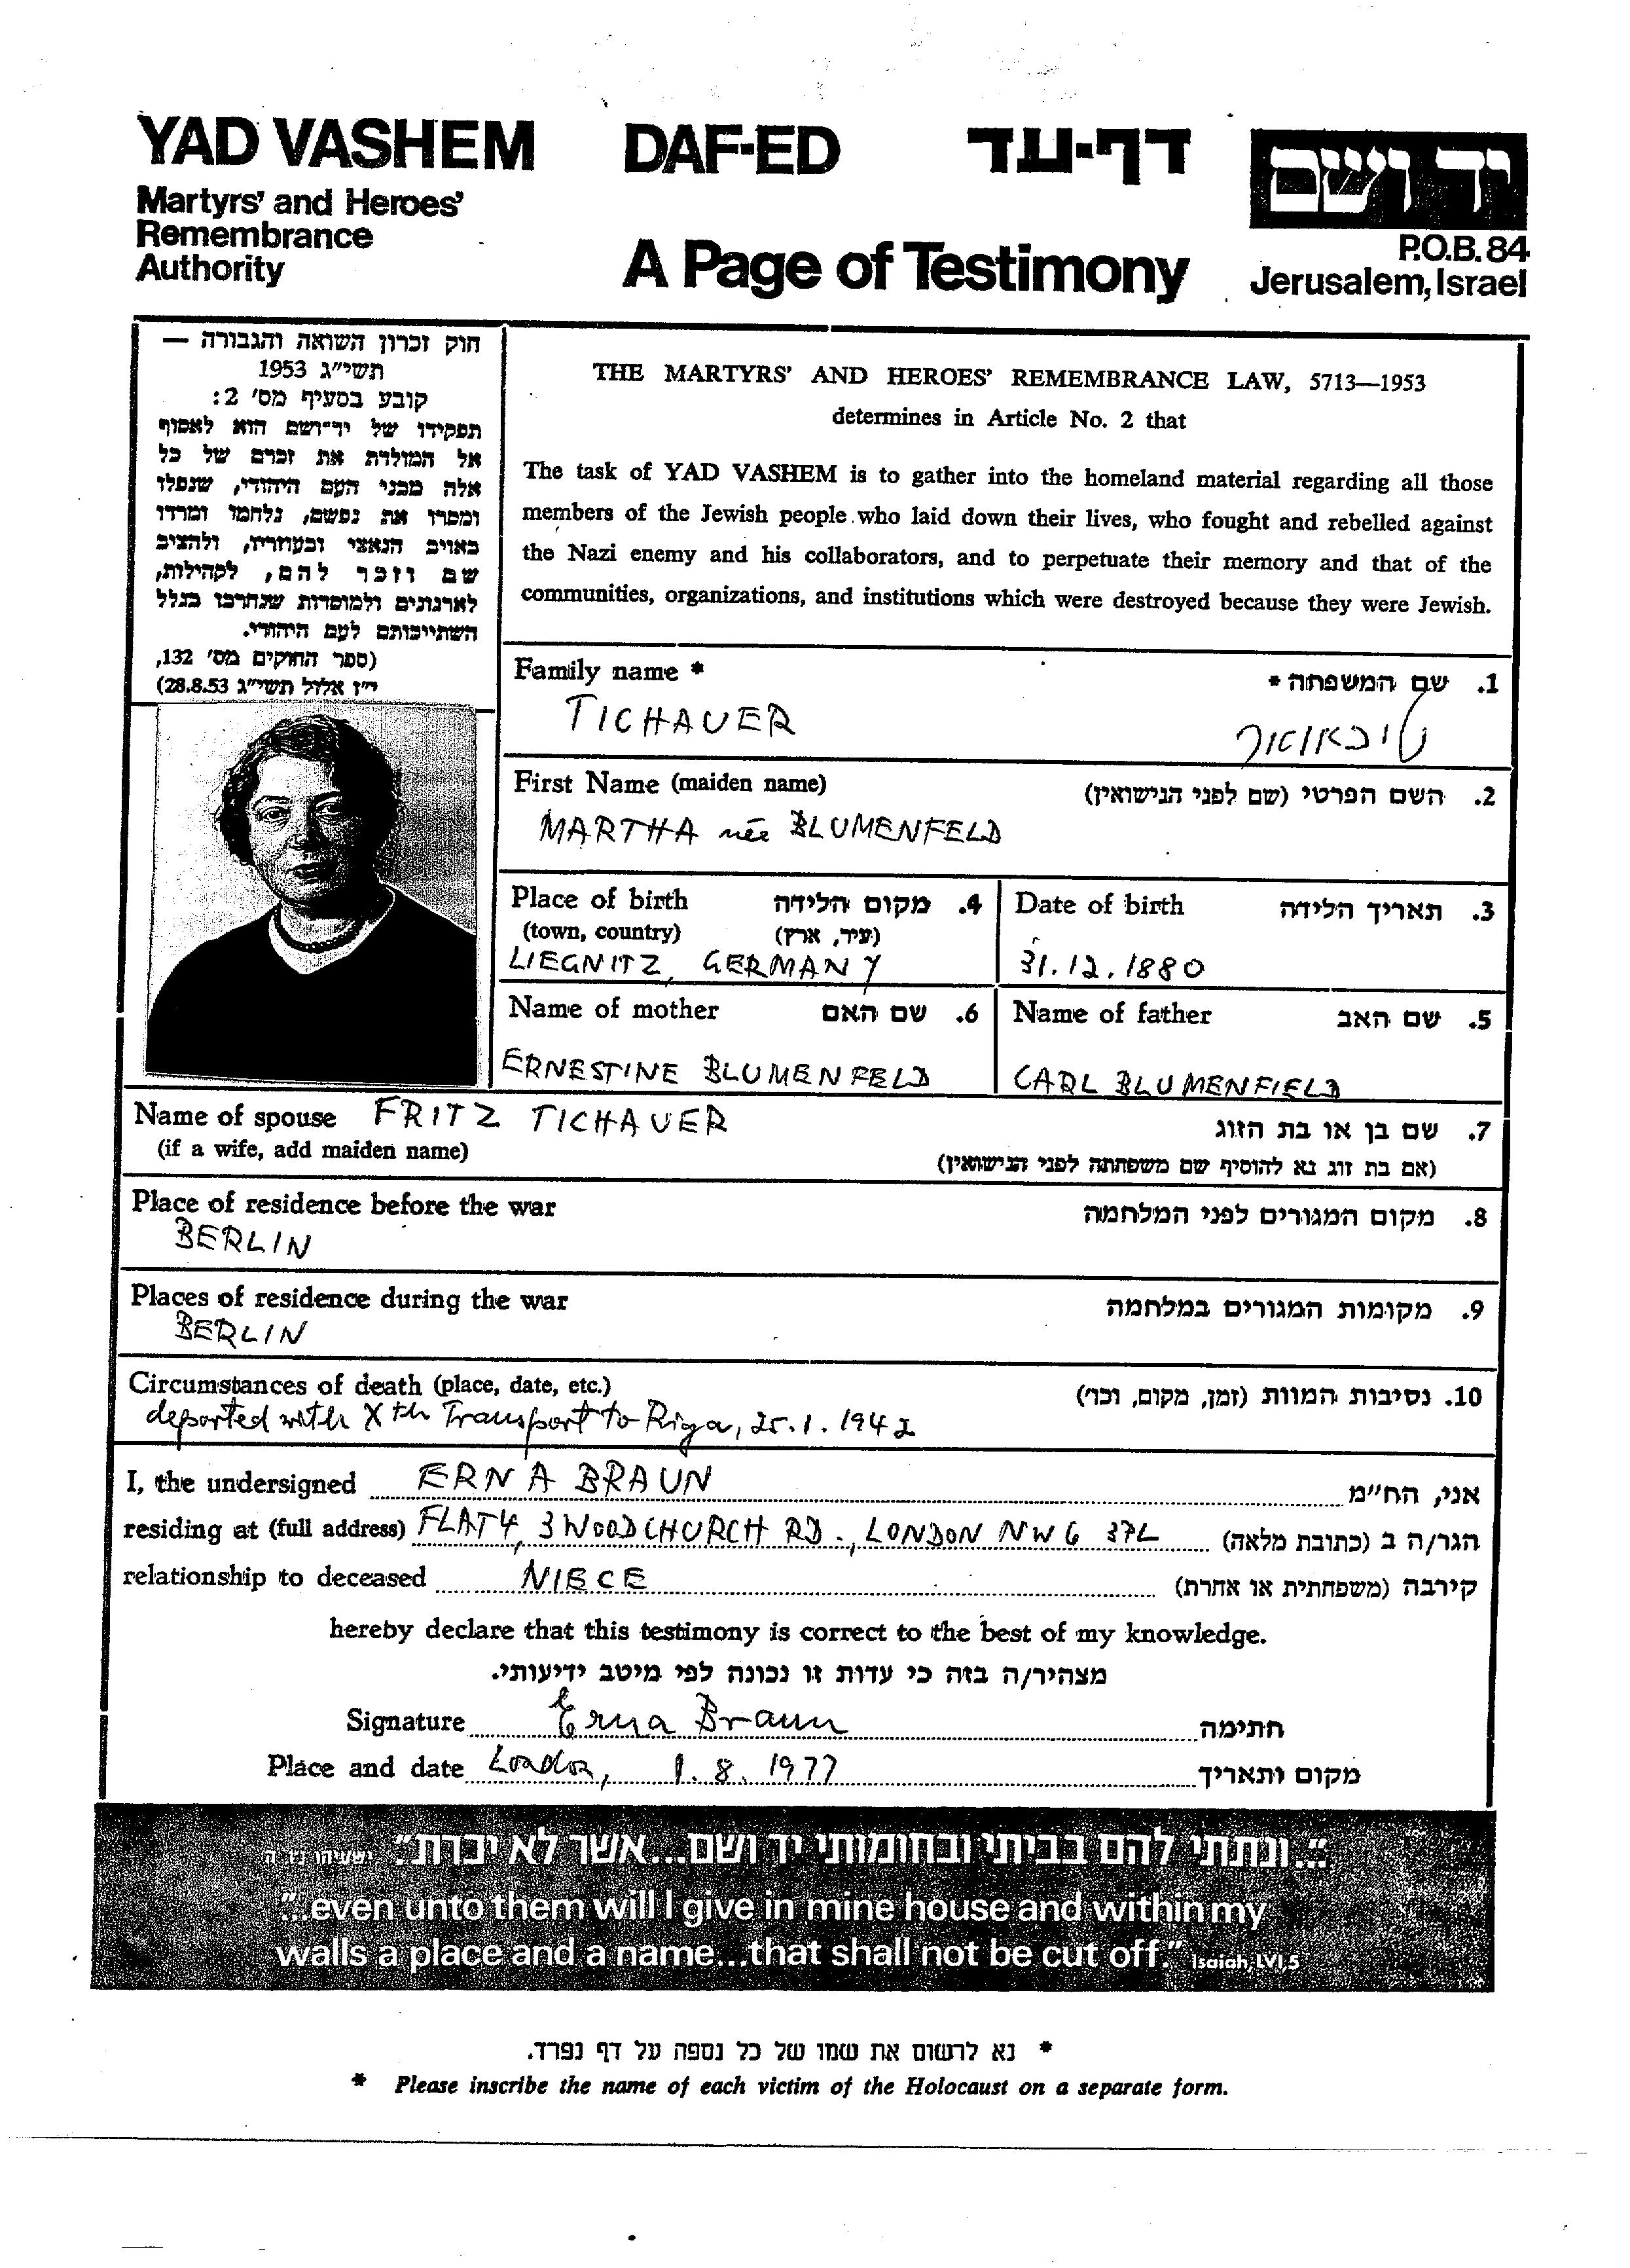 YAD VASHEM
Martyrs' and Heroes'
Remembrance
Authority
DAF-ED דף-עד
A Page of Testimony
יד ושם
P.O.B. 84
Jerusalem, Israel
חוק זכרון השואה והגבורה —
תשי״ג 1953
קובע בסעיף מס׳ 2:
תפקידו של יד־ושם הוא לאסוף
אל המולדת את זכרם של כל
אלה מבני העם היהודי, שנפלו
ומסרו את נפשם, נלחמו ומרדו
באויב הנאצי ובעוזריו, ולהציב
שם וזכר להם, לקהילות,
לארגונים ולמוסדות שנחרבו בגלל
השתייכותם לעם היהודי.
(ספר החוקים מס׳ 132,
י״ז אלול תשי״ג 28.8.53)
THE MARTYRS' AND HEROES' REMEMBRANCE LAW, 5713—1953
determines in Article No. 2 that
The task of YAD VASHEM is to gather into the homeland material regarding all those
members of the Jewish people who laid down their lives, who fought and rebelled against
the Nazi enemy and his collaborators, and to perpetuate their memory and that of the
communities, organizations, and institutions which were destroyed because they were Jewish.
Family name * 1. שם המשפחה *
TICHAUER טיכאואר
First Name (maiden name) 2. השם הפרטי (שם לפני הנישואין)
MARTHA née BLUMENFELD
Place of birth 4. מקום הלידה
(town, country) (עיר, ארץ)
LIEGNITZ, GERMANY
Date of birth 3. תאריך הלידה
31.12.1880
Name of mother 6. שם האם
ERNESTINE BLUMENFELD
Name of father 5. שם האב
CARL BLUMENFIELD
Name of spouse FRITZ TICHAUER 7. שם בן או בת הזוג
(if a wife, add maiden name) (אם בת זוג נא להוסיף שם משפחתה לפני הנישואין)
Place of residence before the war 8. מקום המגורים לפני המלחמה
BERLIN
Places of residence during the war 9. מקומות המגורים במלחמה
BERLIN
Circumstances of death (place, date, etc.) 10. נסיבות המוות (זמן, מקום, וכו׳)
deported with Xth Transport to Riga, 25.1.1942
I, the undersigned ERNA BRAUN אני, הח״מ
residing at (full address) FLAT 4, 3 WOODCHURCH RD., LONDON NW6 3PL הגר/ה ב (כתובת מלאה)
relationship to deceased NIECE קירבה (משפחתית או אחרת)
hereby declare that this testimony is correct to the best of my knowledge.
מצהיר/ה בזה כי עדות זו נכונה לפי מיטב ידיעותי.
Signature Erna Braun חתימה
Place and date London, 1.8.1977 מקום ותאריך
"...ונתתי להם בביתי ובחומותי יד ושם...אשר לא יכרת" ישעיהו נ״ו, ה
"...even unto them will I give in mine house and within my
walls a place and a name...that shall not be cut off." Isaiah, LVI,5
* נא לרשום את שמו של כל נספה על דף נפרד.
* Please inscribe the name of each victim of the Holocaust on a separate form.